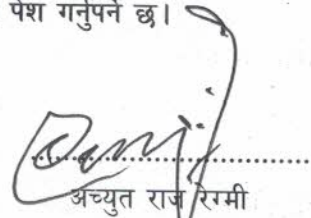 पेश गर्नुपर्ने छ।
अच्युत राज रेग्मी